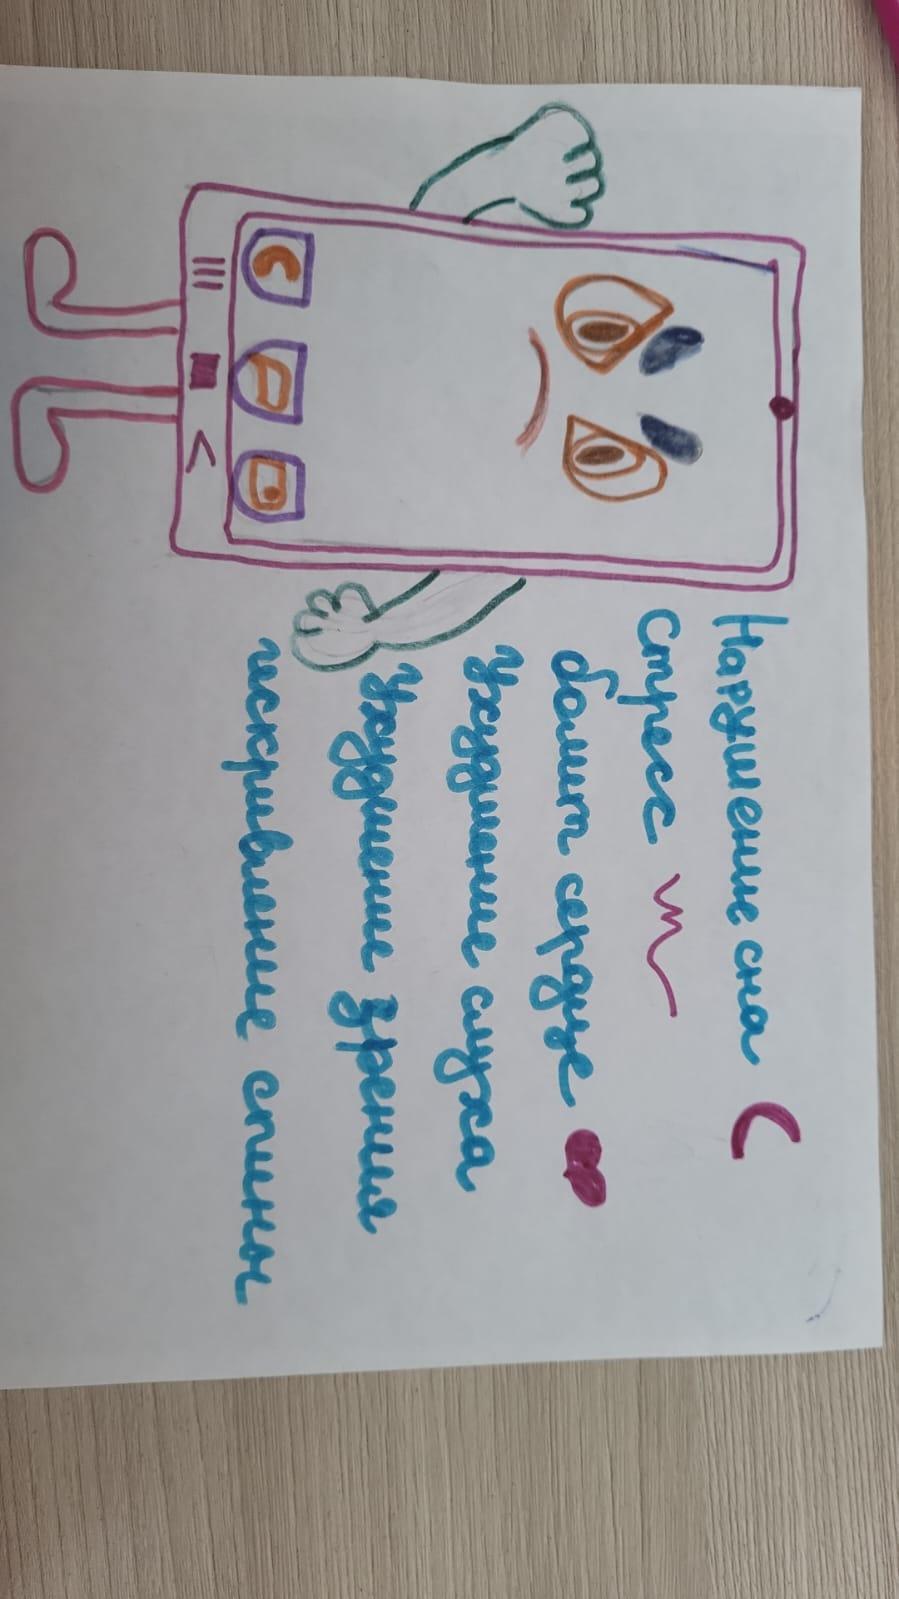 Нарушение сна
стресс
болит сердце
Ухудшение слуха
Ухудшение зрения
искривление спины